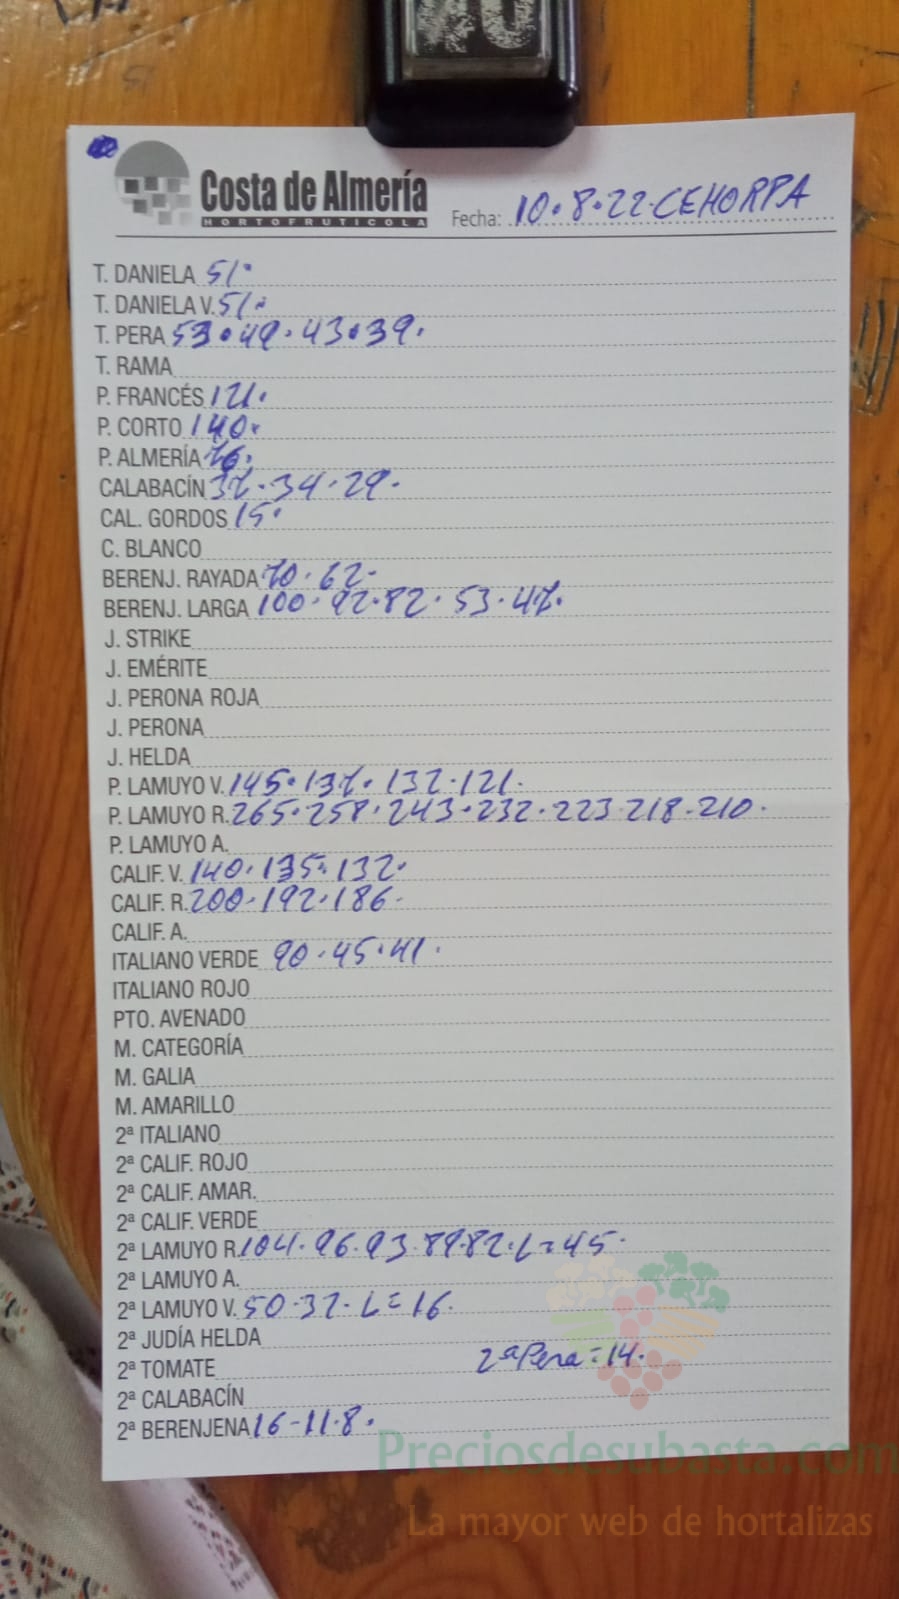 Costa de Almería
HORTOFRUTICOLA
Fecha: 10.8.22.CEHORPA
T. DANIELA 51.
T. DANIELA V. 51.
T. PERA 53.49.43.39.
T. RAMA
P. FRANCÉS 121.
P. CORTO 140.
P. ALMERÍA 76.
CALABACÍN 37.34.29.
CAL. GORDOS 15.
C. BLANCO
BERENJ. RAYADA 70.62.
BERENJ. LARGA 100.92.82.53.47.
J. STRIKE
J. EMÉRITE
J. PERONA ROJA
J. PERONA
J. HELDA
P. LAMUYO V. 145.137.132.121.
P. LAMUYO R. 265.258.243.232.223.218.210.
P. LAMUYO A.
CALIF. V. 140.135.132.
CALIF. R. 200.192.186.
CALIF. A.
ITALIANO VERDE 90.45.41.
ITALIANO ROJO
PTO. AVENADO
M. CATEGORÍA
M. GALIA
M. AMARILLO
2ª ITALIANO
2ª CALIF. ROJO
2ª CALIF. AMAR.
2ª CALIF. VERDE
2ª LAMUYO R. 104.96.93.89.82.L=45.
2ª LAMUYO A.
2ª LAMUYO V. 50.32.L=16.
2ª JUDÍA HELDA
2ª TOMATE 2ª Pera=14.
2ª CALABACÍN
2ª BERENJENA 16-11.8.
Preciosdesubasta.com
La mayor web de hortalizas